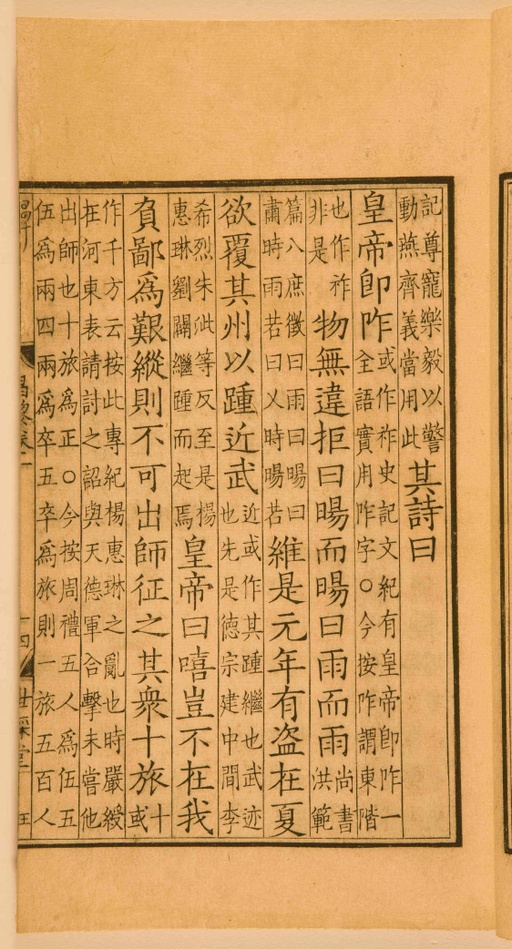 記尊寵樂毅以警
動燕齊義當用此
其詩曰
皇帝卽阼
或作祚史記文紀有皇帝卽阼一
全語實用阼字○今按阼謂東階
也作祚
非是
物無違拒曰暘而暘曰雨而雨
尚書
洪範
篇八庶徵曰雨曰暘曰
肅時雨若曰乂時暘若
維是元年有盗在夏
欲覆其州以踵近武
近或作其踵繼也武迹
也先是德宗建中間李
希烈朱泚等反至是楊
惠琳劉闢繼踵而起焉
皇帝曰嘻豈不在我
負鄙爲艱縱則不可出師征之其衆十旅
十
或
作千方云按此專紀楊惠琳之亂也時嚴綬
在河東表請討之詔與天德軍合擊未嘗他
出師也十旅爲正○今按周禮五人爲伍五
伍爲兩四兩爲卒五卒爲旅則一旅五百人
昌黎卷一
十四
世綵堂